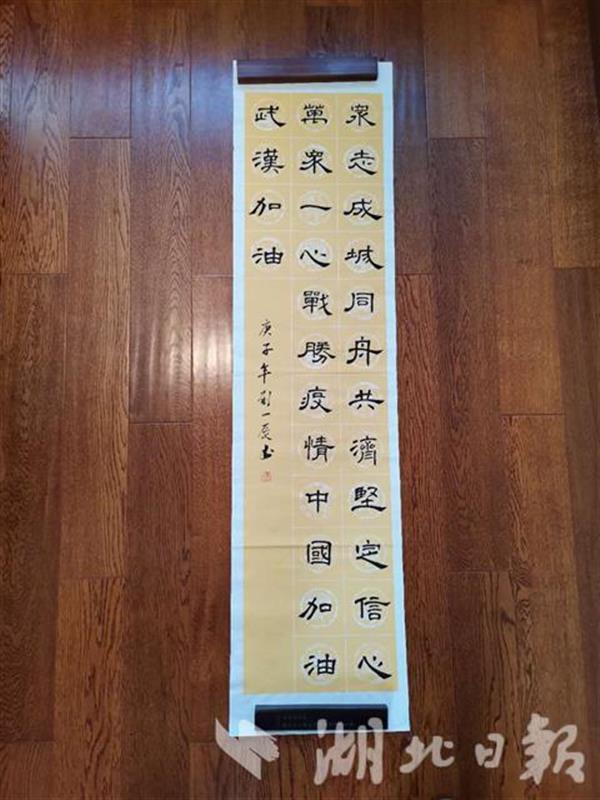 衆志成城同舟共濟堅定信心
萬衆一心戰勝疫情中國加油
武漢加油
庚子年劉一辰书
湖北日報